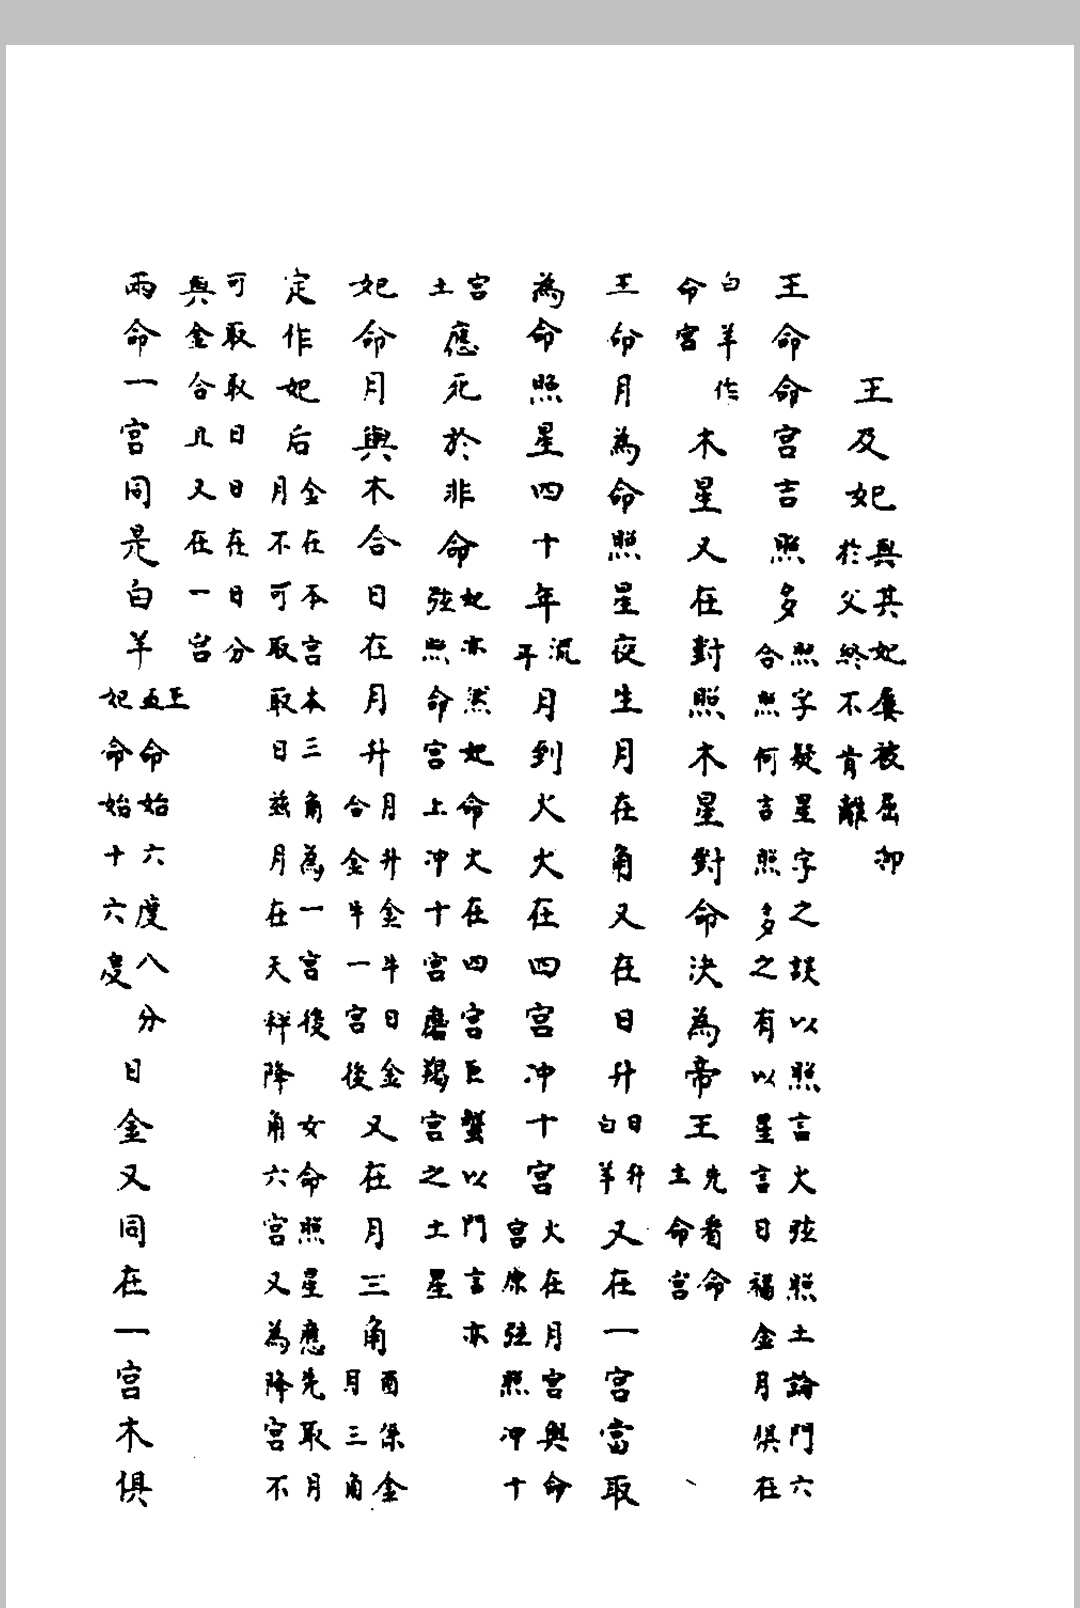 王及妃與其妃屡被屈抑於父終不肯離
王命命宮吉照多照字疑星字之誤以照言火弦照土論門六合照何言照多之有以星言日福金月俱在
白羊作命宮木星又在對照木星對命決為帝王先看命土命宮
王命月為命照星夜生月在角又在日升日升白羊又在一宮當取
為命照星四十年流平月到火火在四宮冲十宮火在月宮與命宮原弦照冲十
宮土應死於非命妃亦然妃命火在四宮巨蟹以門言亦弦照命宮上冲十宮磨羯宮之土星
妃命月與木合日在月升月升金牛日金合金牛一宮後又在月三角酉係金月三角
定作妃后金在本宮本三角為一宮後女命照星應先取月月不可取取日茲月在天秤降角六宮又為降宮不
可取取日日在日分與金合且又在一宮
兩命一宮同是白羊王命始六度八分妃命始十六度日金又同在一宮木俱